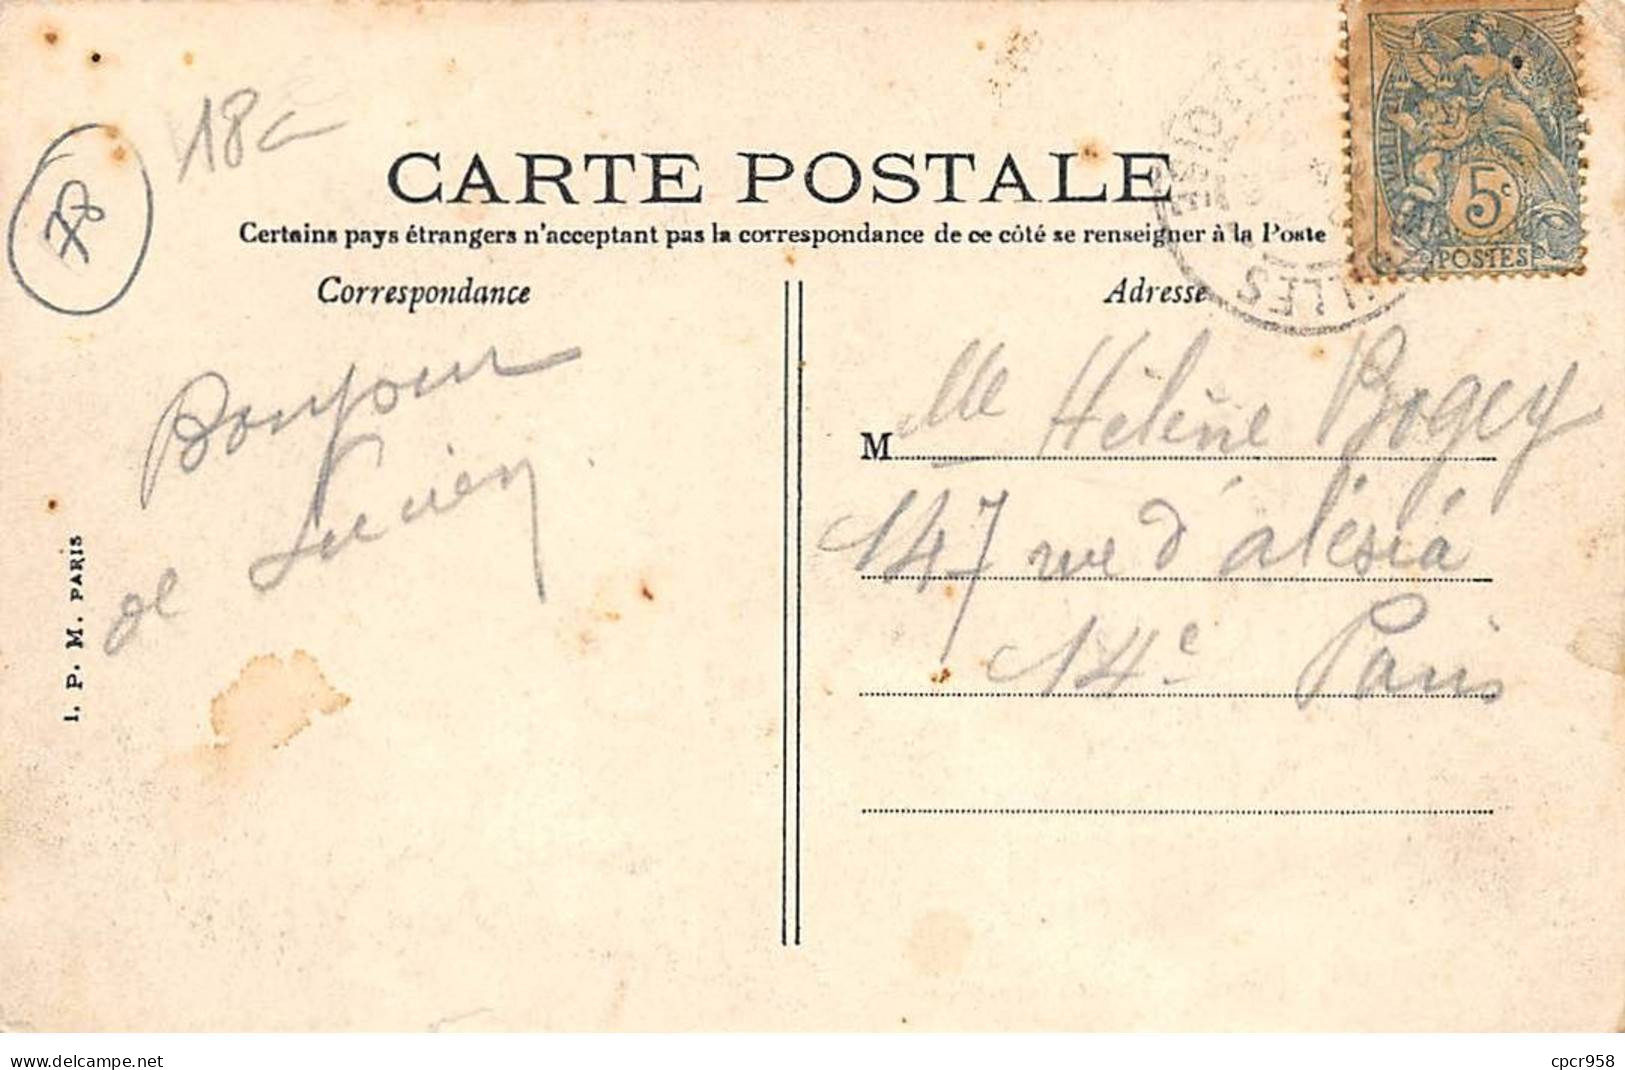 18c
78
CARTE POSTALE
Certains pays étrangers n'acceptent pas la correspondance de ce côté se renseigner à la Poste
Correspondance
Adresse
5c
POSTES
Bonjour
de Lucien
Mlle Hélène Bogey
147 rue d'alésia
14e Paris
I. P. M. PARIS
delcampe.net
cpcr958